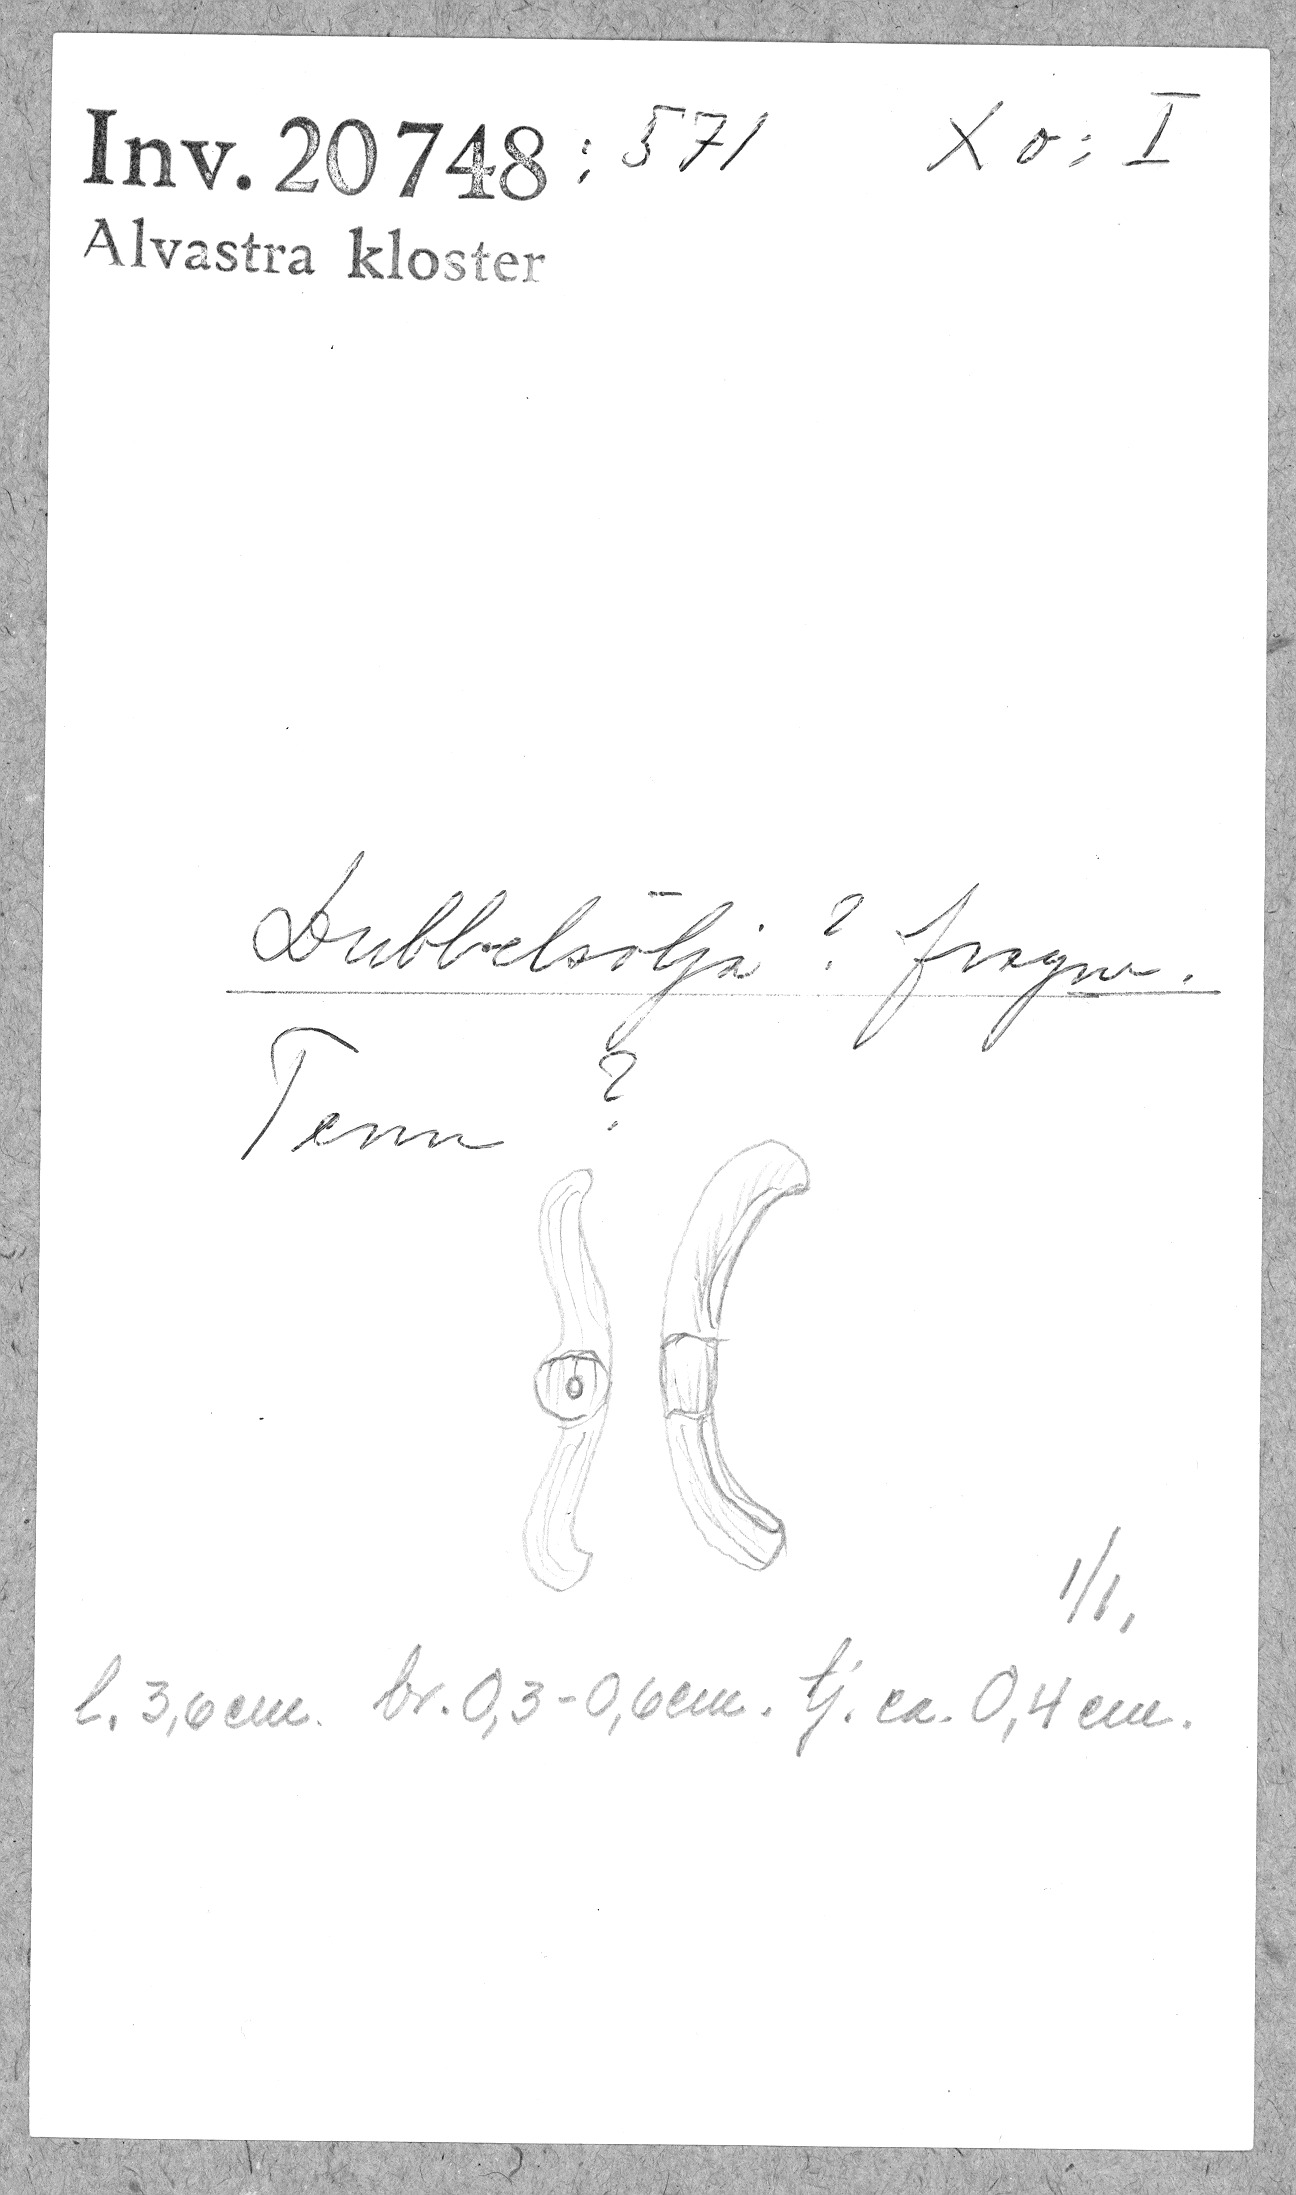 Inv. 20748 : 571 X o: I
Alvastra kloster
Dubbelsölja ? fragm.
Tenn ?
1/1.
l. 3,6 cm. br. 0,3-0,6 cm. tj. ca. 0,4 cm.